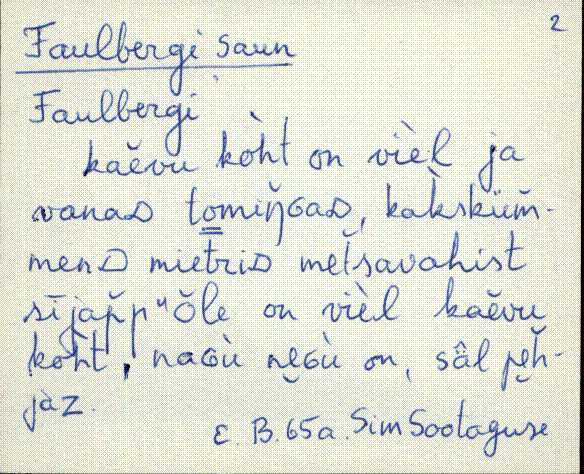 2
Faulbergi saun
Faulbergi
kaěvu kòht on vièl ja
vanaD tomiňGaD, kaksküm̌-
menD mietriD metsavahist
sījapp"ŏle on vièl kaěvu
kòht, naGù ně̬Gù on, sâl pe̬ȟ-
jàz.
E. B. 65a. Sim Sootaguse